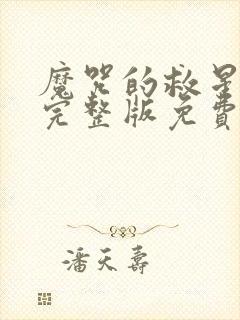 魔咒的救星
完整版免費
潘天壽